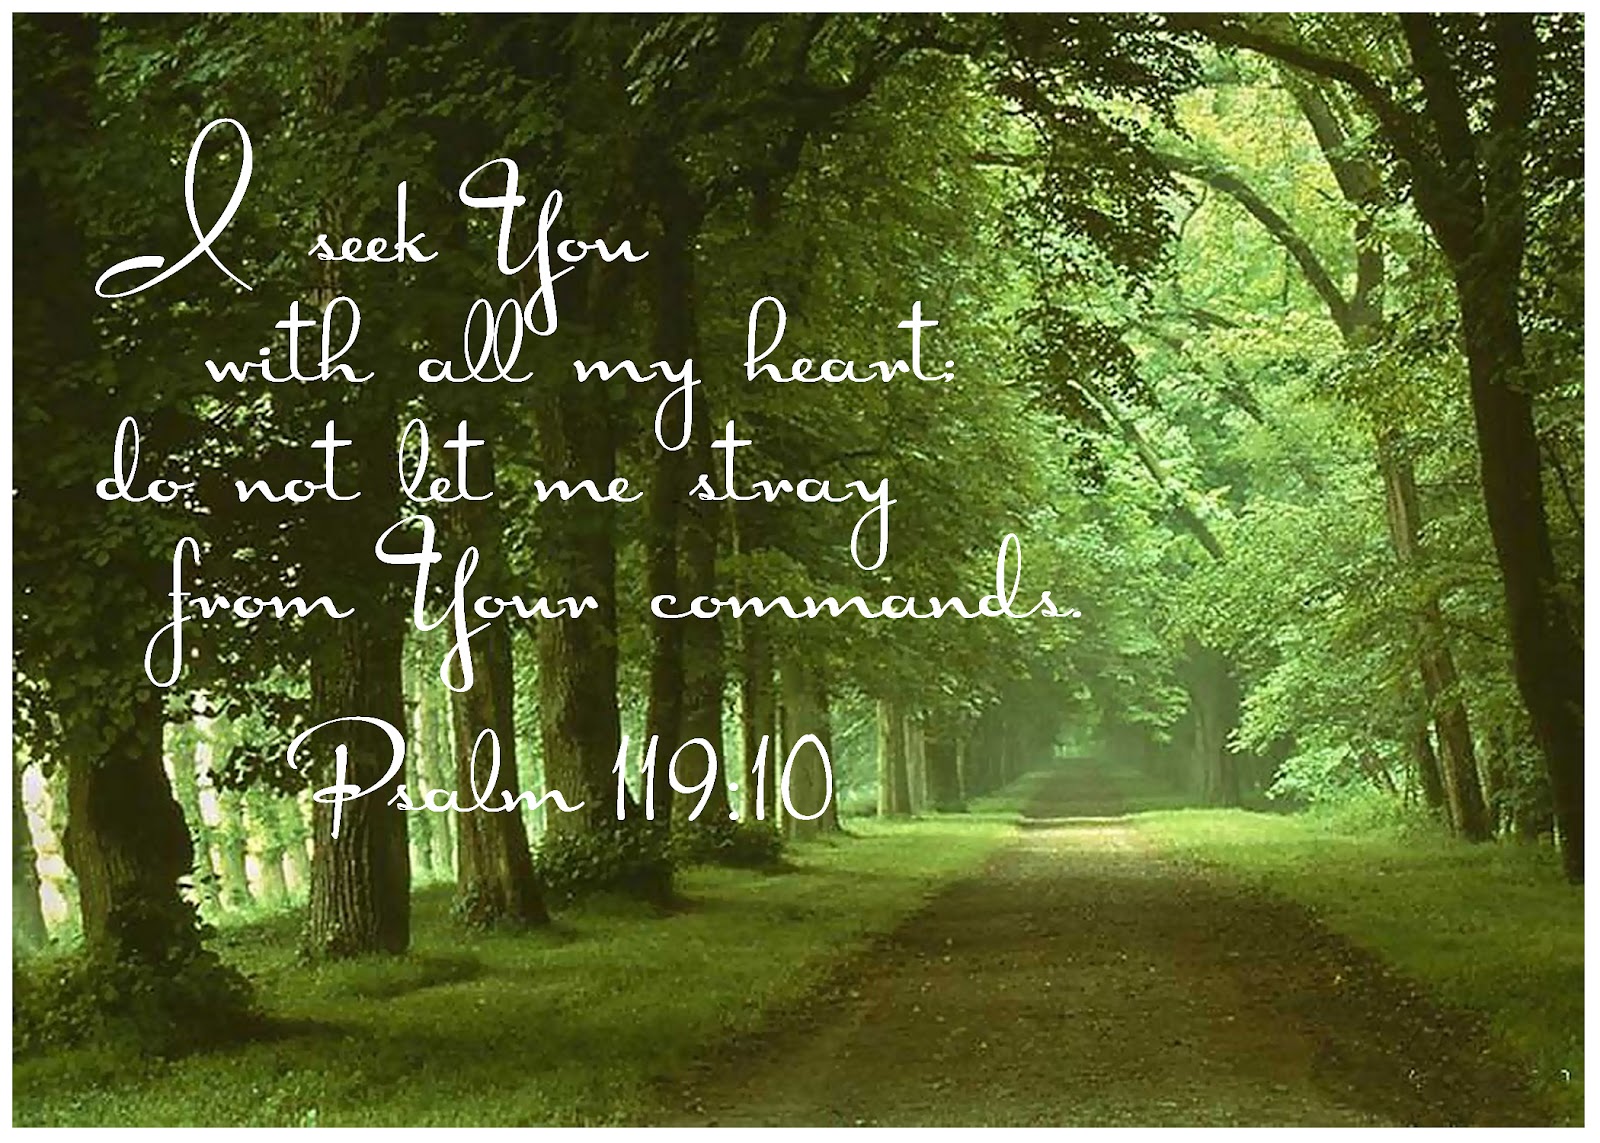 I seek You
with all my heart;
do not let me stray
from Your commands.
Psalm 119:10